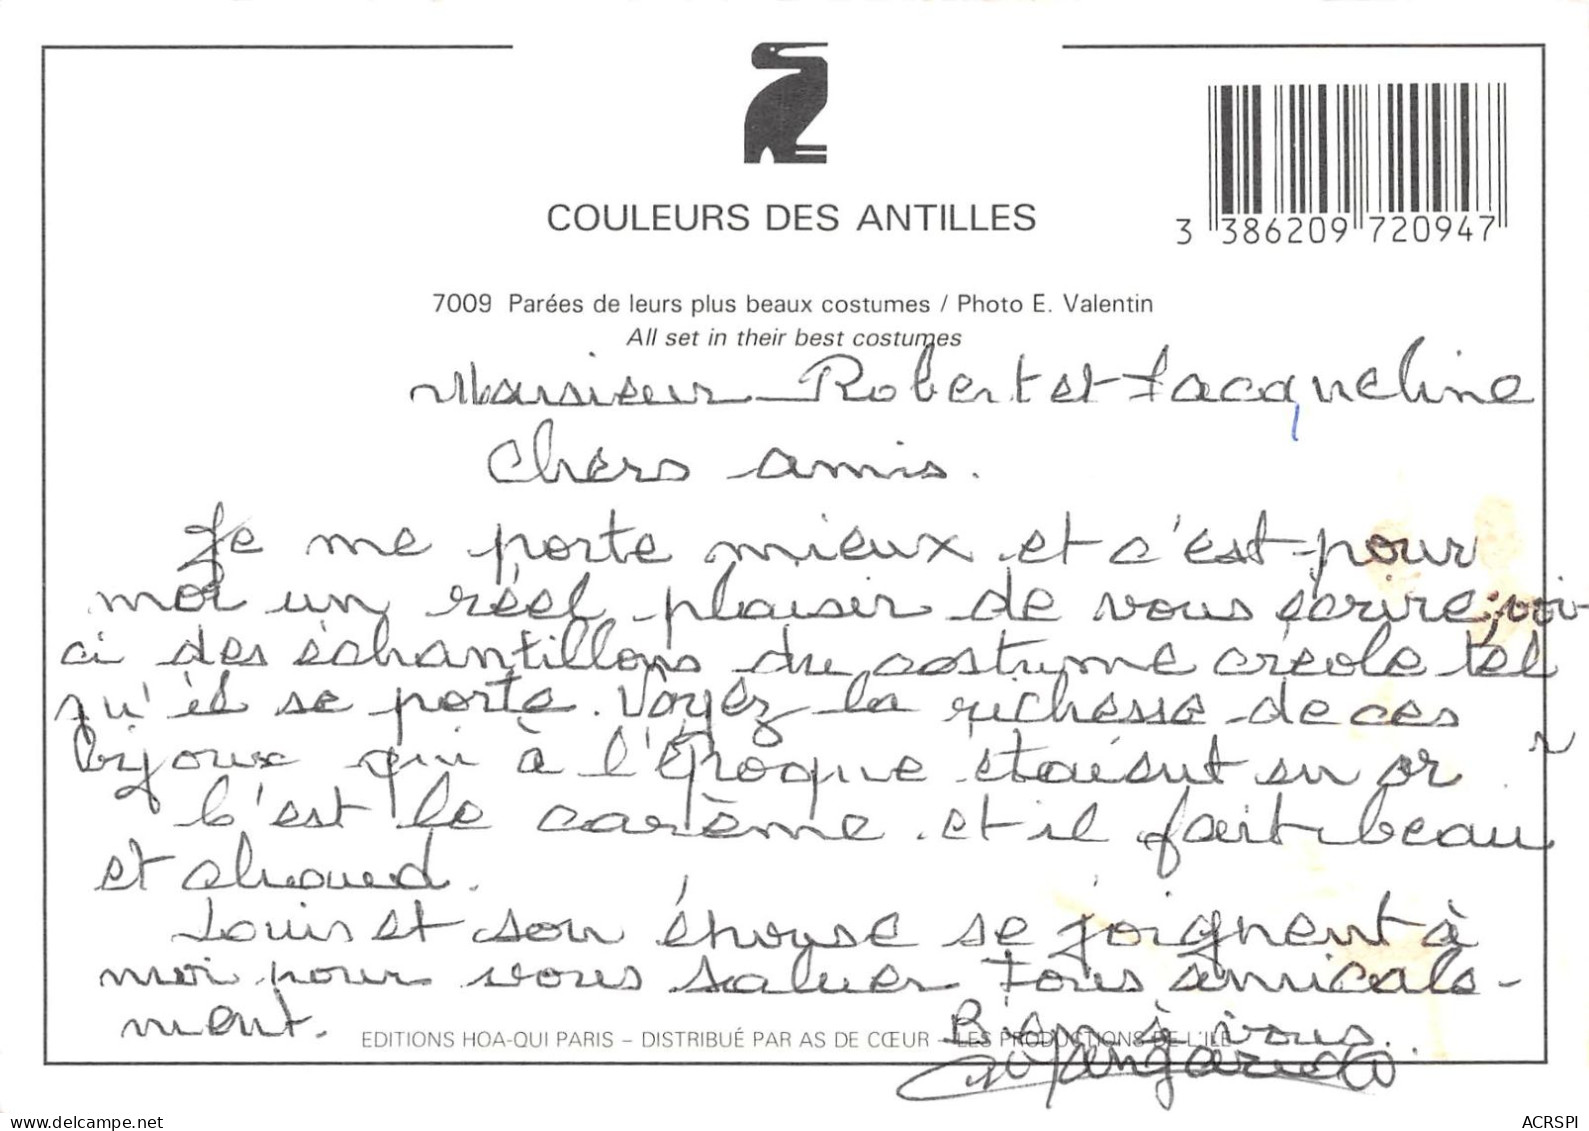 COULEURS DES ANTILLES
3 386209 720947
7009 Parées de leurs plus beaux costumes / Photo E. Valentin
All set in their best costumes
Monsieur Robert et Jacqueline
Chers amis.
Je me porte mieux et c'est pour
moi un réel plaisir de vous écrire, voi-
ci des échantillons du costume créole tel
qu'il se porte. Voyez la richesse de ces
bijoux qui à l'époque étaient en or
C'est le carême et il fait beau
et chaud.
Louis et son épouse se joignent à
moi pour vous saluer tous amicale-
ment.
Bien à vous.
EDITIONS HOA-QUI PARIS – DISTRIBUÉ PAR AS DE CŒUR - LES PRODUCTIONS DE L'ILE
www.delcampe.net
ACRSPI